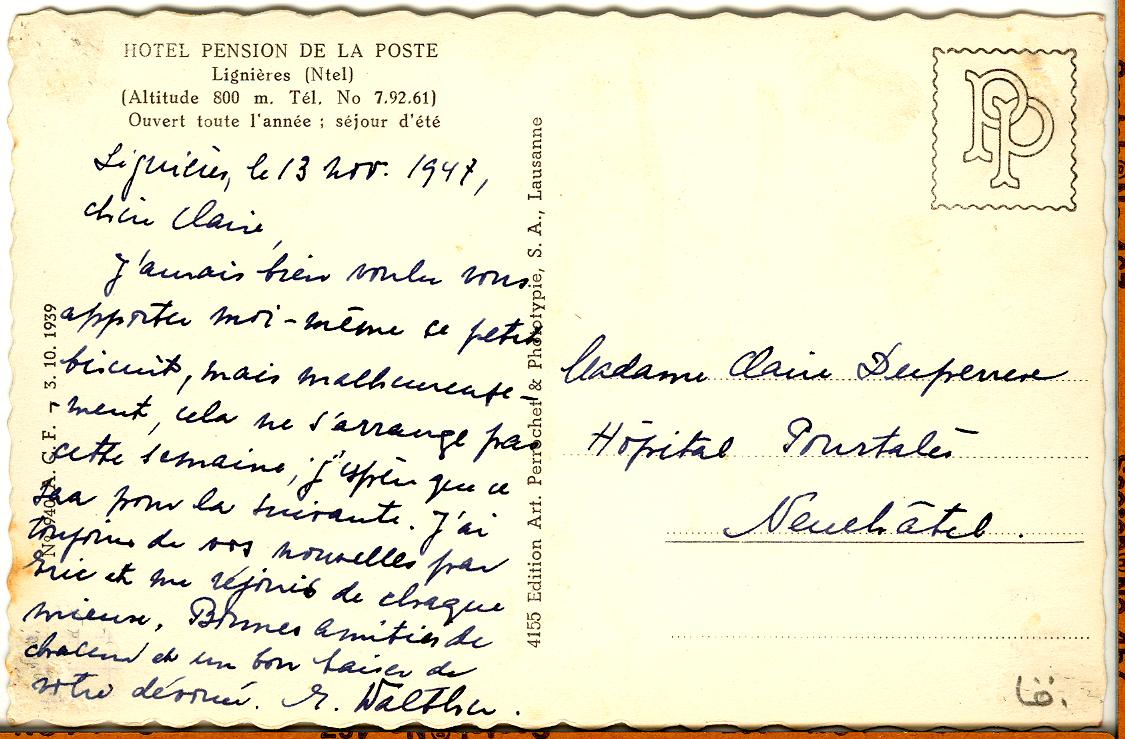 HOTEL PENSION DE LA POSTE
Lignières (Ntel)
(Altitude 800 m. Tél. No 7.92.61)
Ouvert toute l'année ; séjour d'été
Lignières, le 13 nov. 1947,
chère Claire,
J'aurais bien voulu vous
apporter moi-même ce petit
biscuit, mais malheureuse-
-ment, cela ne s'arrange pas
cette semaine, j'espère que ce
sera pour la suivante. J'ai
toujours de vos nouvelles par
Eric et me réjouis de chaque
mieux. Bonnes amitiés de
chacun et un bon baiser de
votre dévoué. E. Walther.
A. C. F. 3. 10. 1939
4155 Edition Art. Perrochet & Phototypie, S. A., Lausanne
PP
Madame Claire Duperrex
Hôpital Pourtalès
Neuchâtel.